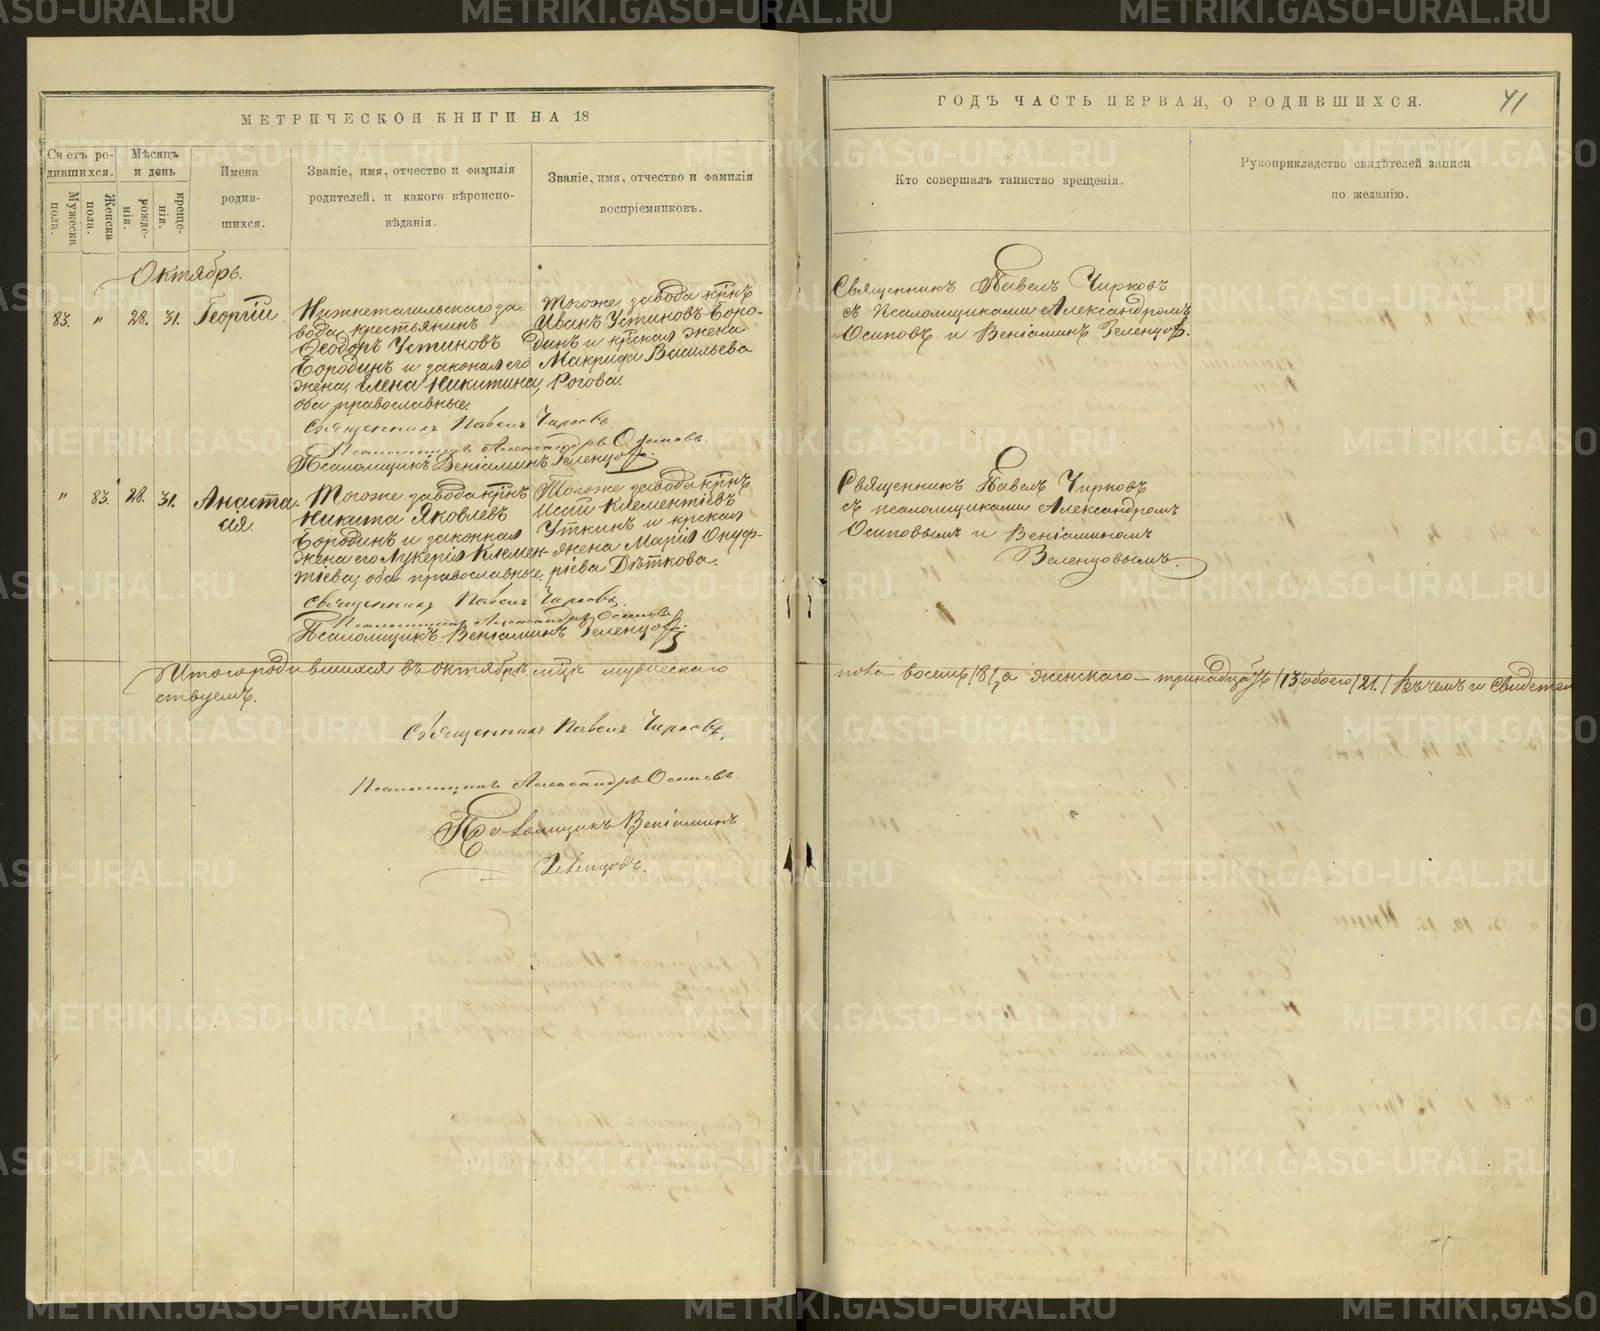 МЕТРИЧЕСКОЙ КНИГИ НА 18
Счетъ родившихся.
Мужеска пола.
Женска пола.
Мѣсяцъ и день
рожденія.
крещенія.
Имена родившихся.
Званіе, имя, отчество и фамилія
родителей, и какого вѣроиспо-
вѣданія.
Званіе, имя, отчество и фамилія
воспріемниковъ.
Октябрь.
83. " 28. 31. Георгій
Нижнетагильскаго за
вода крестьянинъ
Ѳеодоръ Устиновъ
Бородинъ и законная его
жена Елена Никитина,
оба православные.
Тогоже завода крнъ
Иванъ Устиновъ Боро-
динъ и крская жена
Васильева
Рогова.
Священникъ Павелъ Чирковъ.
Псаломщикъ Александръ Осиповъ.
Псаломщикъ Веніаминъ Зеленцов.
" 83. 28. 31. Анаста
сія
Тогоже завода крнъ
Никита Яковлевъ
Бородинъ и законная
жена его Лукерія Клемен-
тіева, оба православные.
Тогоже завода крнъ
Клементіевъ
Уткинъ и крская
жена Марія Онуф-
ріева Дѣткова.
Священникъ Павелъ Чирковъ.
Псаломщикъ Александръ Осиповъ
Псаломщикъ Веніаминъ Зеленцов
Итого родившихся въ октябрѣ мцѣ мужескаго
ствуемъ.
Священникъ Павелъ Чирковъ.
Псаломщикъ Александръ Осиповъ.
Псаломщикъ Веніаминъ
Зеленцовъ.
ГОДЪ ЧАСТЬ ПЕРВАЯ, О РОДИВШИХСЯ.
41
Кто совершалъ таинство крещенія.
Рукоприкладство свидѣтелей записи
по желанію.
Священникъ Павелъ Чирковъ
съ псаломщиками Александромъ
Осиповъ и Веніаминъ Зеленцов.
Священникъ Павелъ Чирковъ
съ псаломщиками Александромъ
Осиповымъ и Веніаминомъ
Зеленцовымъ.
пола восемь /8/, а женскаго тринадцать /13/ обоего /21./ Въ чемъ и свидетел
METRIKI.GASO-URAL.RU